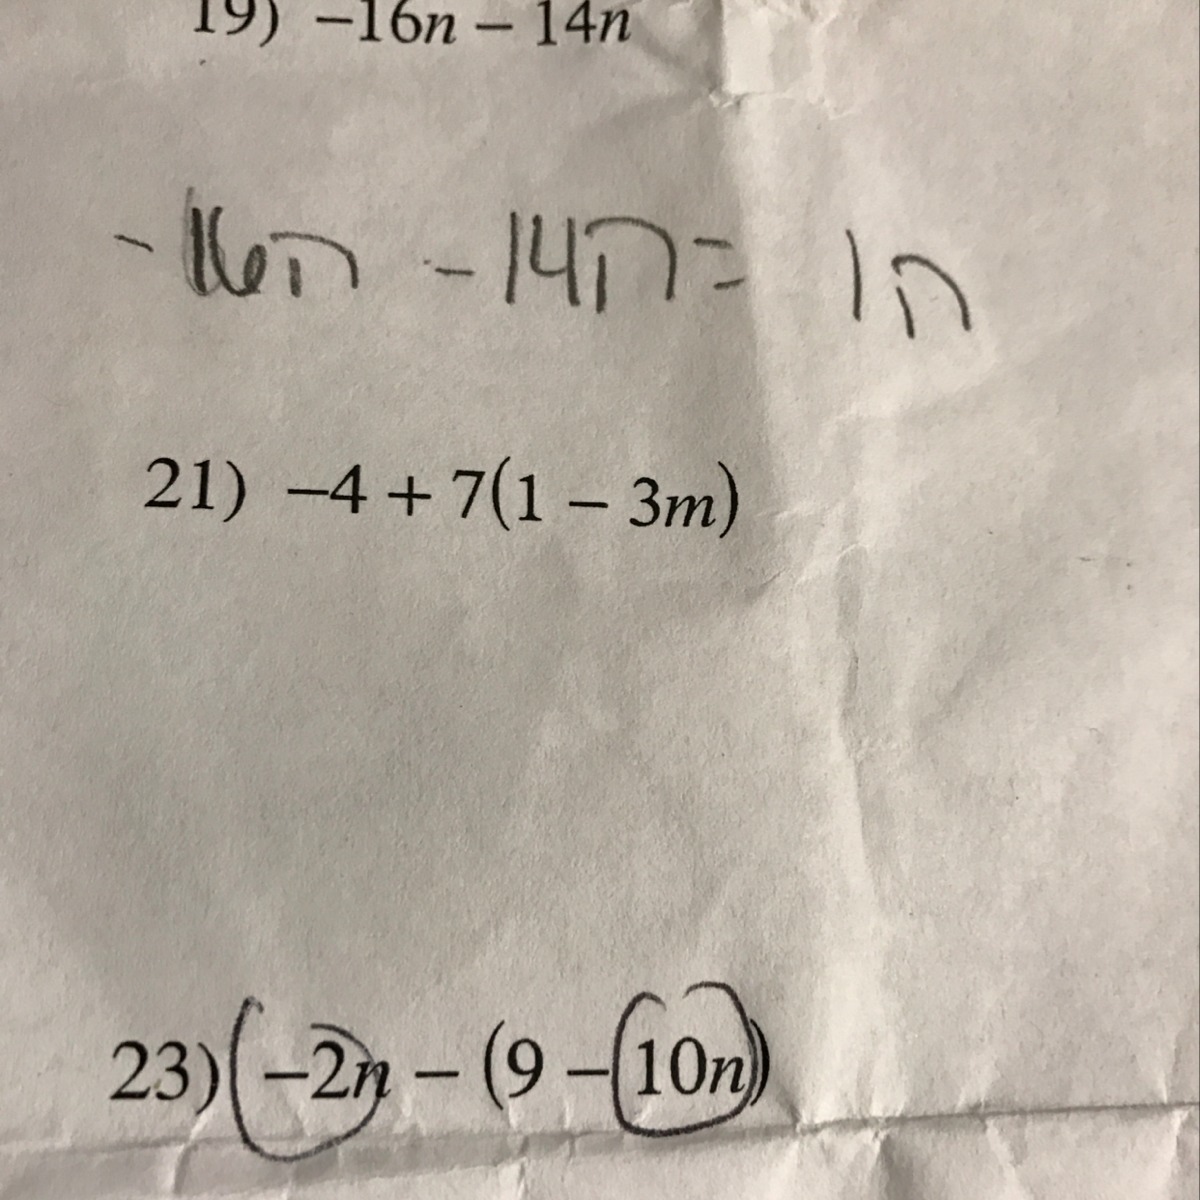 19) −16n − 14n
- 16n - 14n = 1n
21) −4 + 7(1 − 3m)
23) −2n − (9 − 10n)